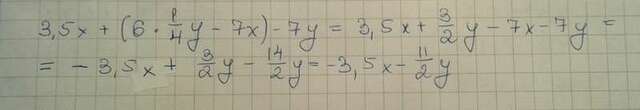 3,5x + (6 · 1/4 y - 7x) - 7y = 3,5x + 3/2 y - 7x - 7y =
= - 3,5x + 3/2 y - 14/2 y = -3,5x - 11/2 y